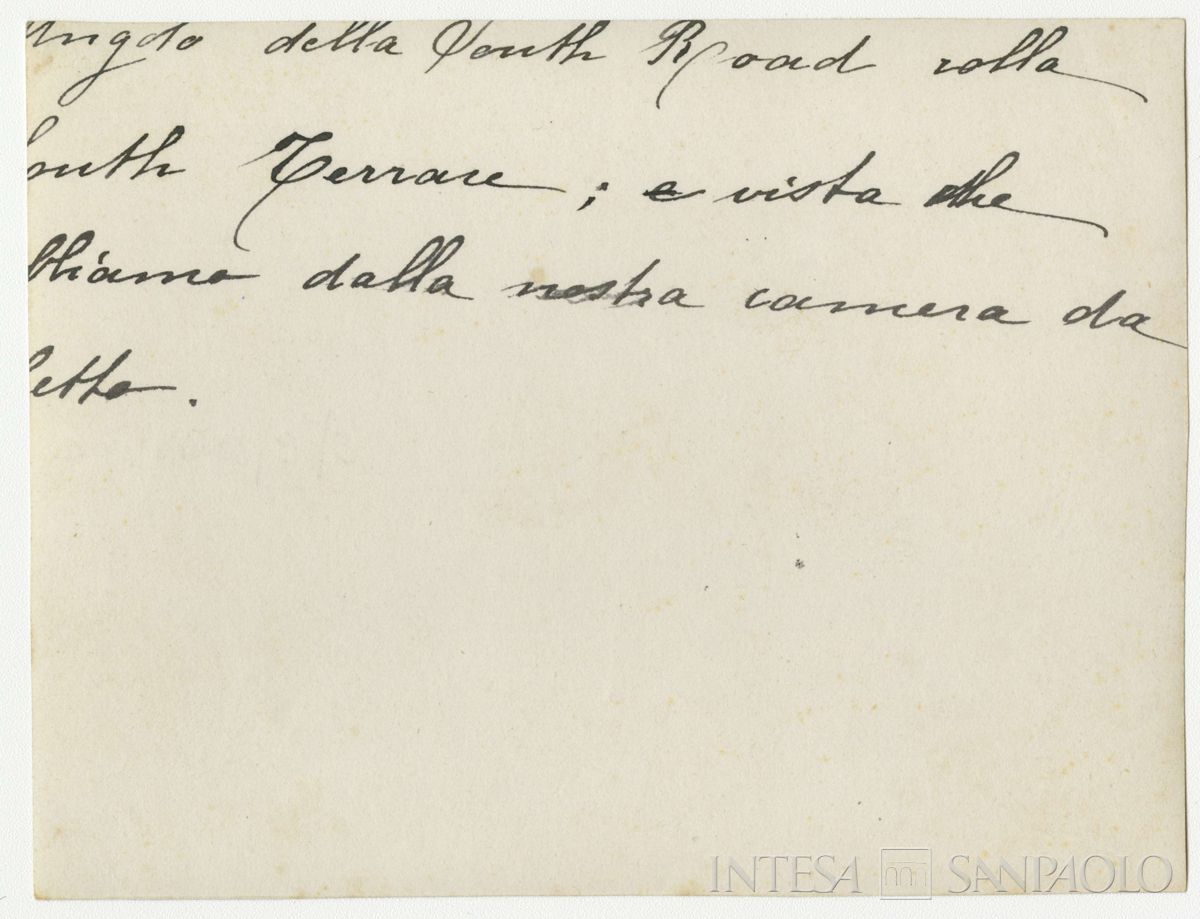 Angolo della South Road colla
South Terrace ; e vista che
abbiamo dalla nostra camera da
letto .
INTESA SANPAOLO